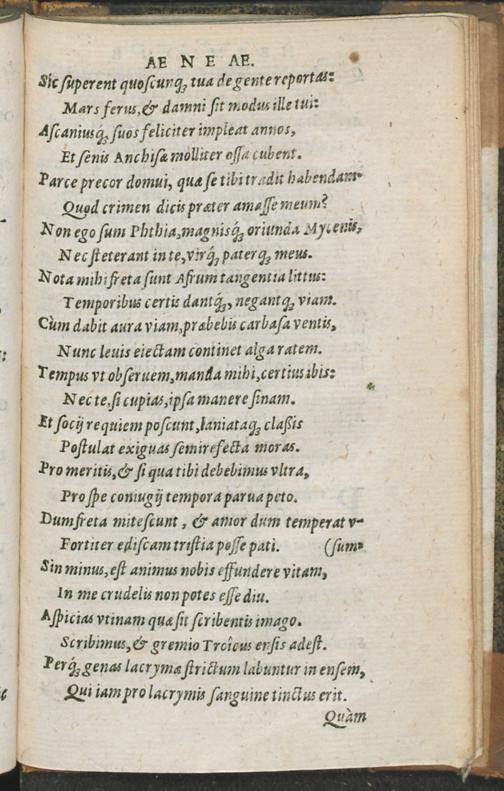 AE N E AE.
Sic ſuperent quoſcunq́; tua de gente reportas:
Mars ferus, & damni ſit modus ille tui:
Aſcaniusq́; ſuos feliciter impleat annos,
Et ſenis Anchiſæ molliter oſſa cubent.
Parce precor domui, quæ ſe tibi tradit habendam.
Quod crimen dicis præter amaſſe meum?
Non ego ſum Phthia, magnisq́; oriunda Mycenis,
Nec ſteterant in te, virq́; paterq́; meus.
Nota mihi freta ſunt Afrum tangentia littus:
Temporibus certis dantq́;, negantq́; viam.
Cùm dabit aura viam, præbebis carbaſa ventis,
Nunc leuis eiectam continet alga ratem.
Tempus vt obſeruem, manda mihi, certius ibis:
Nec te, ſi cupias, ipſa manere ſinam.
Et ſocij requiem poſcunt, laniataq́; claßis
Poſtulat exiguas ſemirefecta moras.
Pro meritis, & ſi qua tibi debebimus vltra,
Pro ſpe coniugij tempora parua peto.
Dum freta miteſcunt, & amor dum temperat v-
Fortiter ediſcam triſtia poſſe pati. (ſum.
Sin minus, eſt animus nobis effundere vitam,
In me crudelis non potes eſſe diu.
Aſpicias vtinam quæ ſit ſcribentis imago.
Scribimus, & gremio Troicus enſis adeſt.
Perq́; genas lacrymæ ſtrictum labuntur in enſem,
Qui iam pro lacrymis ſanguine tinctus erit.
Quàm